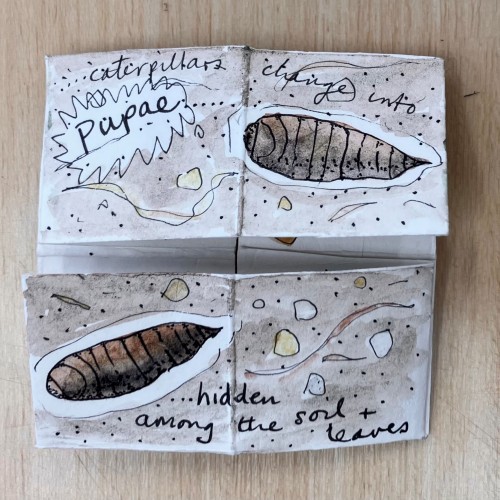 ...caterpillars change into...
Pupae.....
...hidden
among the soil +
leaves